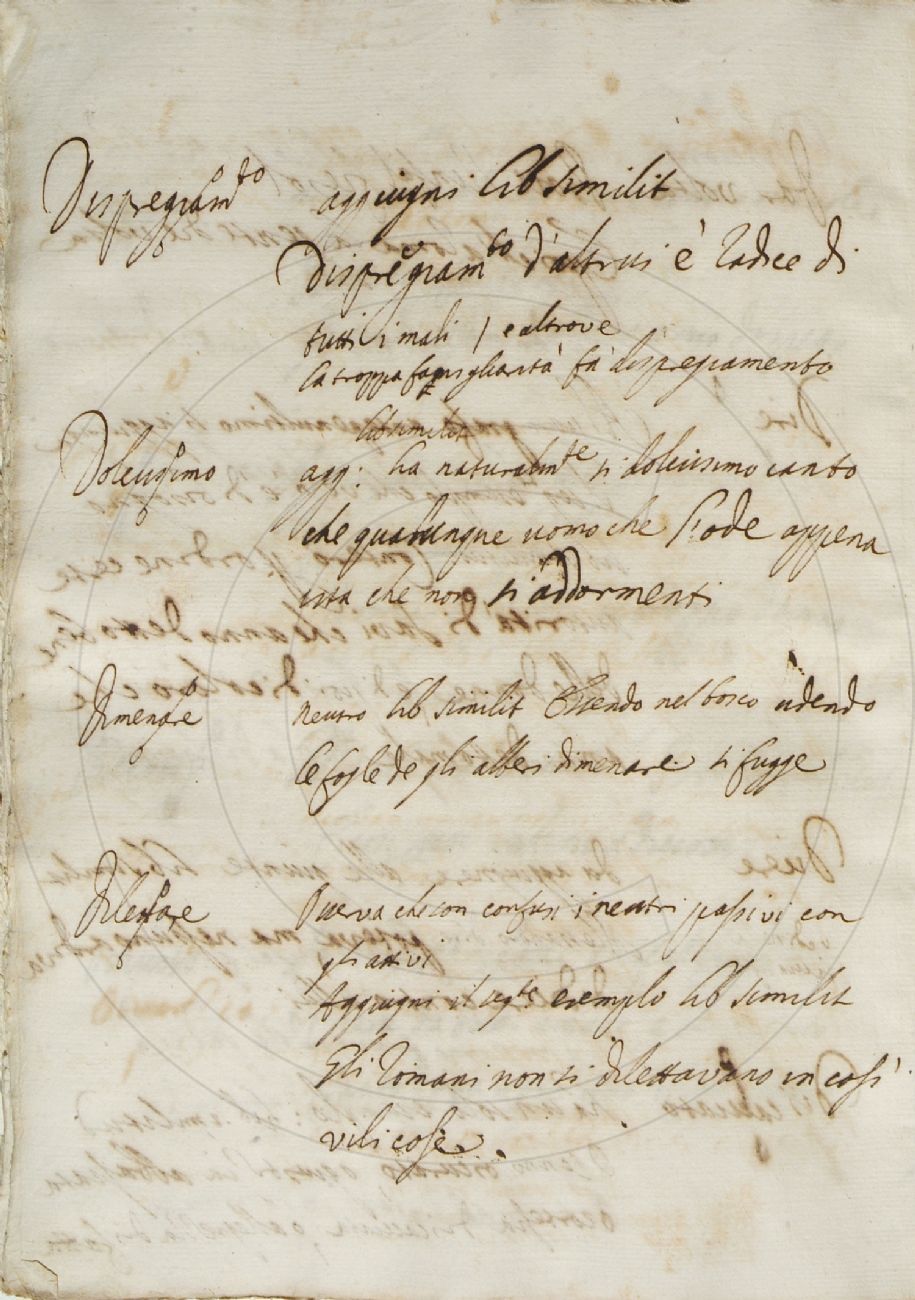 Dispregiamto aggiugni Lib similit
Dispregiamto d'altrui è Radice di
tutti i mali / e altrove
la troppa famigliarità fà dispregiamento
Lib similit
Dolcissimo agg: ha naturalmte si dolcissimo canto
che qualunque uomo che l'ode appena
che non si addormenti
Dimenare neutro Lib similit Essendo nel bosco udendo
le foglie de gli alberi dimenare si fugge
Dilettare Osserva che son confusi i neutri passivi con
gli attivi
Aggiugni il segte esempio Lib similit
Gli Romani non si dilettavano in così
vili cose.